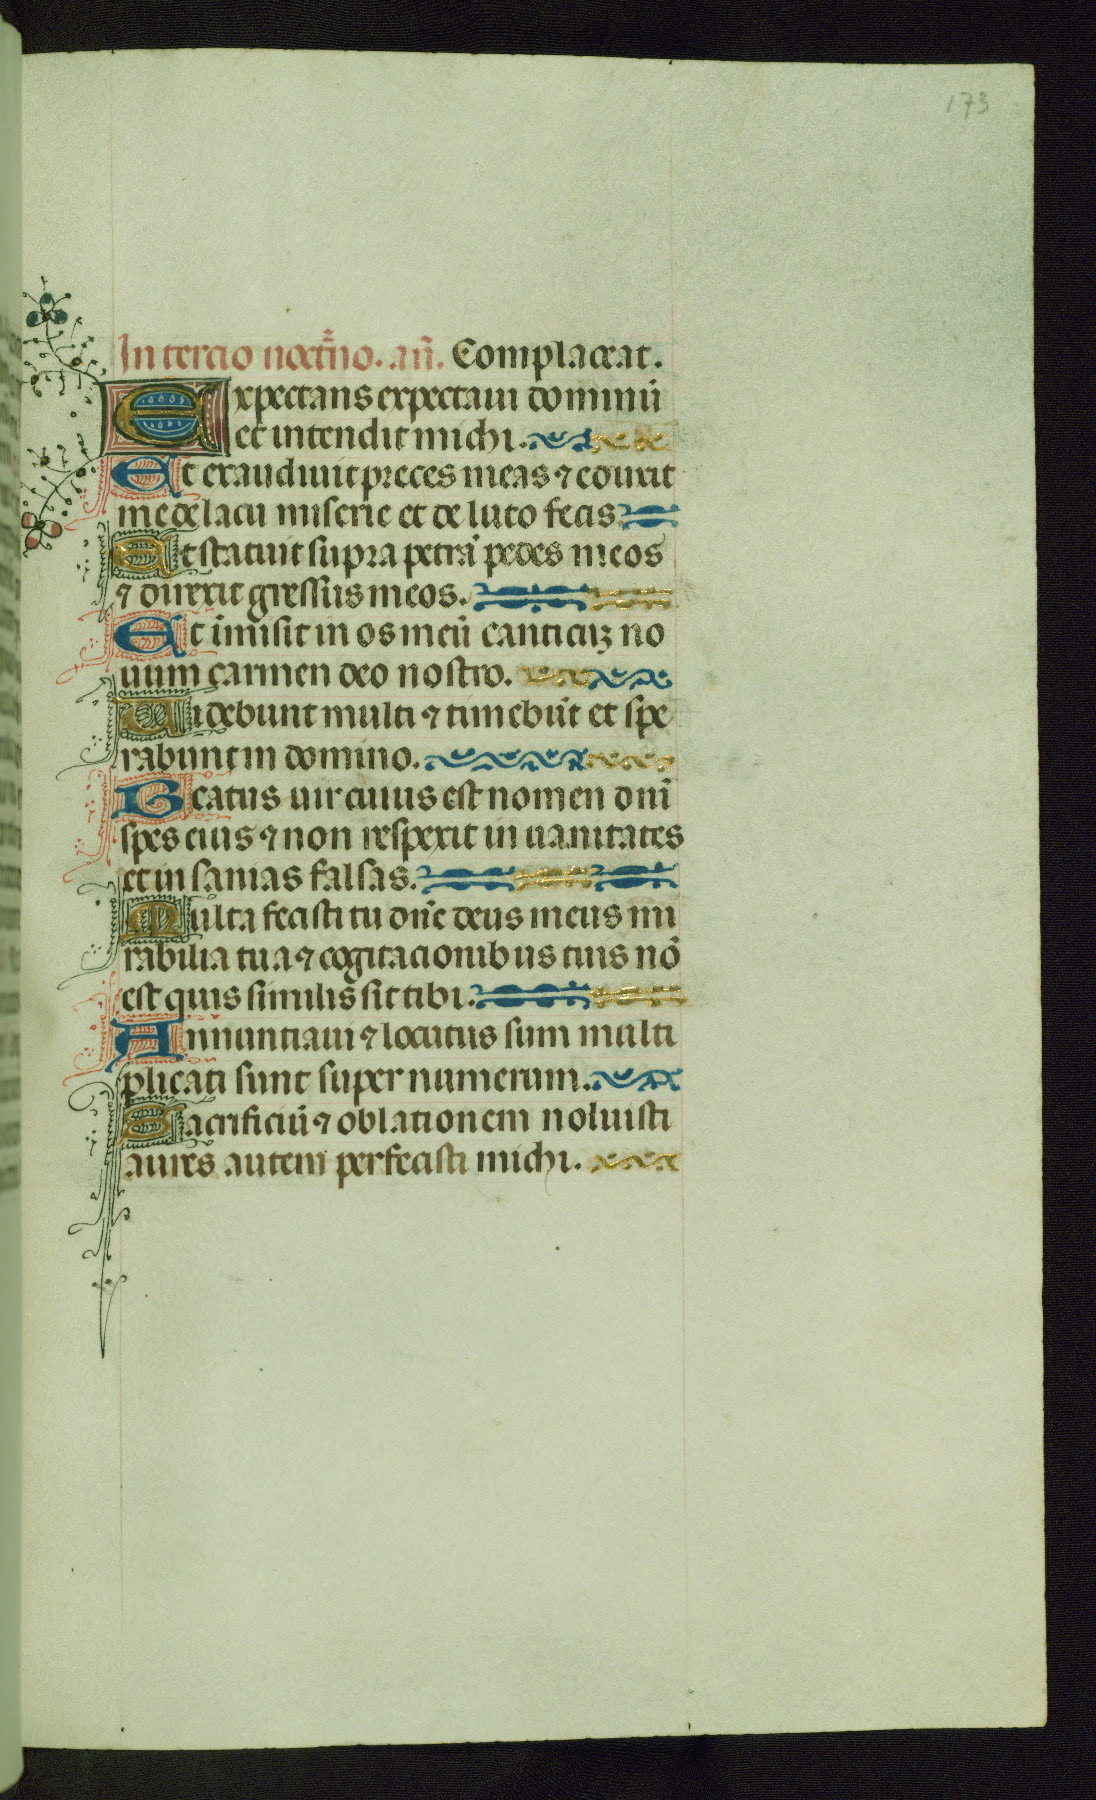 173
In tercio noct̄no. an̄. Complaceat.
Expectans expectaui dominū
et intendit michi.
Et exaudiuit preces meas ⁊ eduxit
me de lacu miserie et de luto fecis
Et statuit supra petrā pedes meos
⁊ direxit gressus meos.
Et īmisit in os meū canticūꝫ no
uum carmen deo nostro.
Uidebunt multi ⁊ timebūt et spe
rabunt in domino.
Beatus uir cuius est nomen dn̄i
spes eius ⁊ non respexit in uanitates
et in sanias falsas.
Multa fecisti tu dn̄e deus meus mi
rabilia tua ⁊ cogitacionibus tuis nō
est quis similis sit tibi.
Annuntiaui ⁊ locutus sum multi
plicati sunt super numerum.
Sacrificiū ⁊ oblationem noluisti
aures autem perfecisti michi.